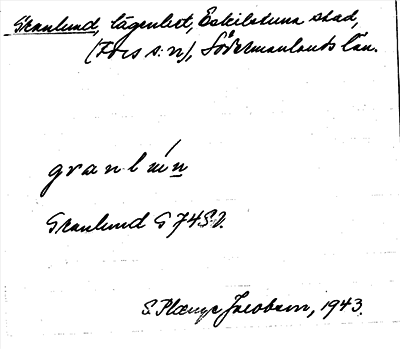 Granlund, lägenhet, Eskilstuna stad,
(Fors s:n), Södermanlands län.
granlún
Granlund G 74 S.V.
S. Jacobson, 1943.